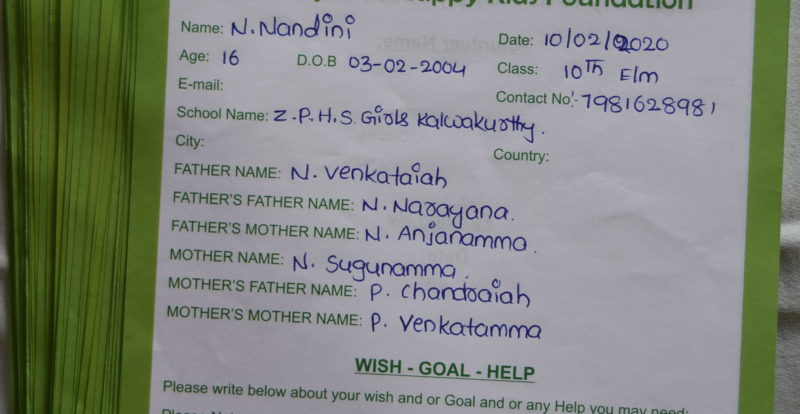 Happy Kids Foundation
Name: N. Nandini Date: 10/02/2020
Age: 16 D.O.B 03-02-2004 Class: 10TH Elm
E-mail: Contact No:- 7981628981
School Name: Z.P.H.S. Girls Kalwakurthy.
City: Country:
FATHER NAME: N. Venkataiah
FATHER'S FATHER NAME: N. Narayana.
FATHER'S MOTHER NAME: N. Anjanamma.
MOTHER NAME: N. Sugunamma.
MOTHER'S FATHER NAME: P. Chandraiah
MOTHER'S MOTHER NAME: P. Venkatamma
WISH - GOAL - HELP
Please write below about your wish and or Goal and or any Help you may need: